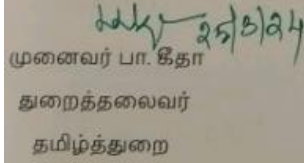 25/3/24
முனைவர் பா. கீதா
துறைத்தலைவர்
தமிழ்த்துறை